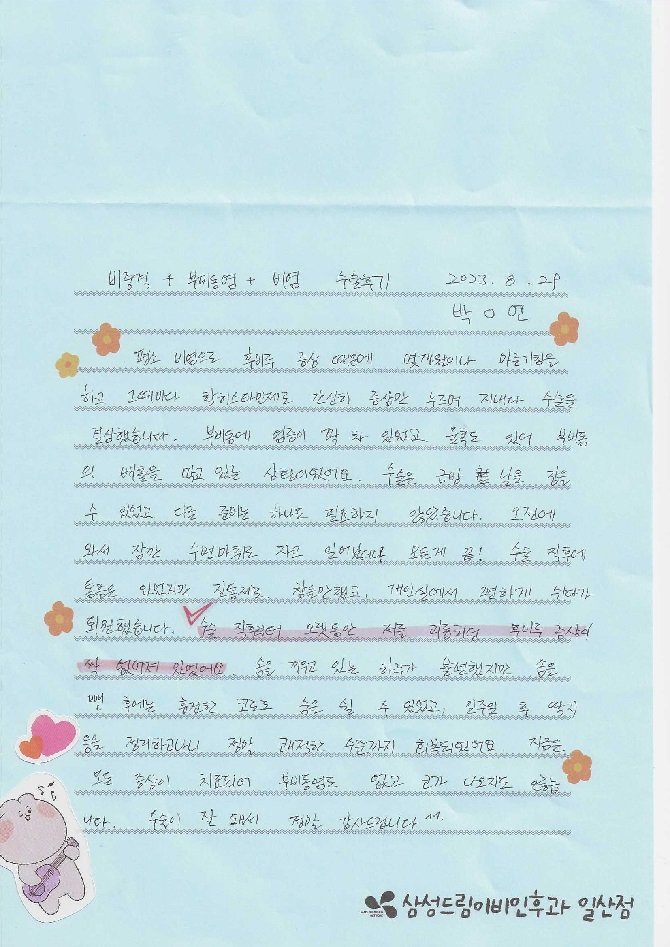 비중격 + 부비동염 + 비염 수술후기 2023. 8. 29
박 O 연
평소 비염으로 후비루 증상 때문에 몇개월이나 마른기침을
하고 그때마다 항히스타민제로 간신히 증상만 누르며 지내다 수술을
결심했습니다. 부비동에 염증이 꽉 차 있었고 물혹도 있어 부비동
의 배출을 막고 있는 상태이었어요. 수술은 금방 날을 잡을
수 있었고 다른 준비는 하나도 필요하지 않았습니다. 오전에
와서 잠깐 수면마취로 자고 일어났더니 모든게 끝! 수술 직후에
통증은 있었지만 진통제로 참을만했고, 개인실에서 편하게 쉬다가
퇴원했습니다. 수술 직후부터 오랫동안 저를 괴롭히던 후비루 증상이
싹 없어져 있었어요. 솜을 끼우고 있는 하루가 불편했지만 솜을
뺀 후에는 훌쩍한 코로도 숨을 쉴 수 있었고, 일주일 후 딱지
등을 제거하고나니 정말 쾌적한 수준까지 회복되었어요 지금은
모든 증상이 치료되어 부비동염도 없고 코가 나오지도 않습
니다. 수술이 잘 돼서 정말 감사드립니다 ^^
삼성드림이비인후과 일산점